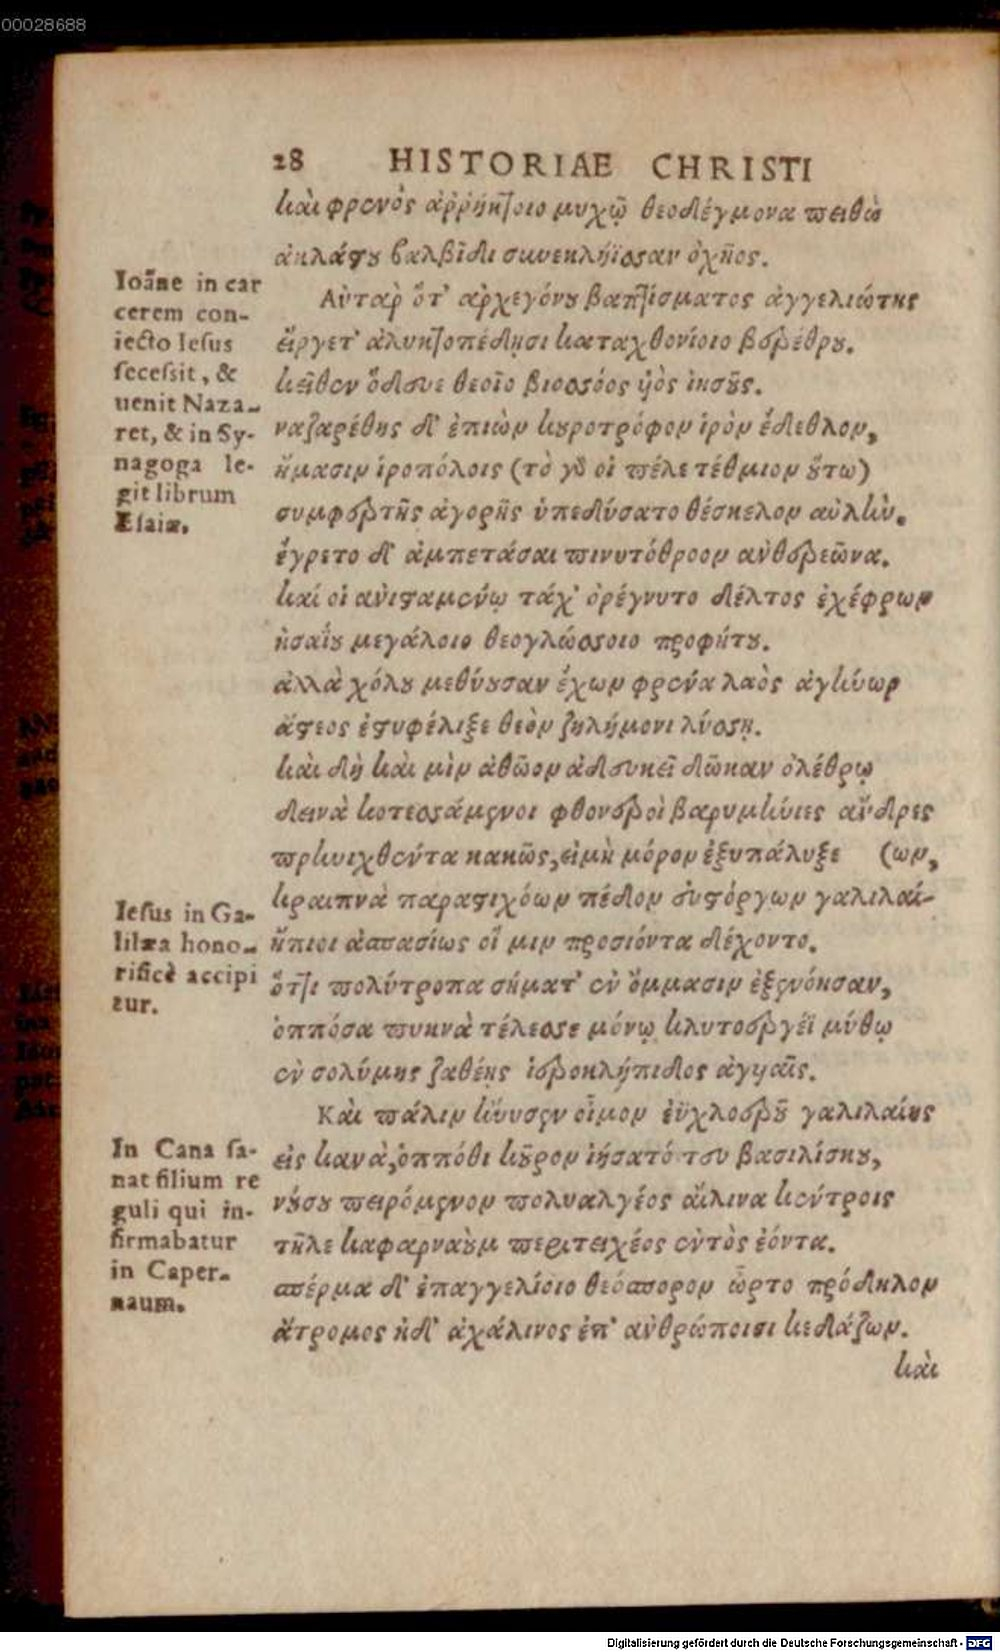 00028688
28 HISTORIAE CHRISTI
καὶ φρενὸς ἀῤῥήκτοιο μυχῷ θεοδέγμονα πειθὼ
ἀκλάστου βαλβῖδι συνεκλήϊσσαν ὀχῆος.
Ioāne in car
cerem con-
iecto Iesus
secessit, &
uenit Naza-
ret, & in Sy-
nagoga le-
git librum
Esaiæ.
Αὐτὰρ ὅτ' ἀρχεγόνου βαπτίσματος ἀγγελιώτης
εἴργετ' ἀλυκτοπέδῃσι καταχθονίοιο βερέθρου.
κεῖθεν ὅδευε θεοῖο βιοσσόος υἱὸς ἰησοῦς.
ναζαρέθης δ' ἐπιὼν κουροτρόφον ἱρὸν ἔδεθλον,
ἤμασιν ἱροπόλοις (τὸ γάρ οἱ πέλε τέθμιον οὕτω)
συμφερτῆς ἀγορῆς ὑπεδύσατο θέσκελον αὐλήν.
ἔγρετο δ' ἀμπετάσαι πινυτόθροον ἀνθερεῶνα.
καί οἱ ἀνισταμένῳ τάχ' ὀρέγνυτο δέλτος ἐχέφρων
ἠσαΐου μεγάλοιο θεογλώσσοιο προφήτου.
ἀλλὰ χόλου μεθύουσαν ἔχων φρένα λαὸς ἀγήνωρ
ἄστεος ἐστυφέλιξε θεὸν ζηλήμονι λύσσῃ.
καὶ δὴ καὶ μὶν ἀθῶον ἀδευκεῖ δῶκαν ὀλέθρῳ
δεινὰ κοτεσσάμενοι φθονεροὶ βαρυμήνιες ἄνδρες
πρηνιχθέντα κακῶς, εἰμὴ μόρον ἐξυπάλυξε (ων,
Iesus in Ga-
lilæa hono-
rificè accipi
tur.
κραιπνὰ παραστιχόων πέδον εὐστόργων γαλιλαί-
ἤπιοι ἀσπασίως οἵ μιν προσιόντα δέχοντο.
ὅττι πολύτροπα σήματ' ἐν ὄμμασιν ἐξενόησαν,
ὁππόσα πυκνὰ τέλεσσε μόνῳ κλυτοεργέϊ μύθῳ
ἐν σολύμης ζαθέης ἱεροκλήπιδος ἀγυιαῖς.
Καὶ πάλιν ἤνυσεν οἶμον ἐϋχλοεροῦ γαλιλαίης
In Cana sa-
nat filium re
guli qui in-
firmabatur
in Caper-
naum.
εἰς κανὰ, ὁππόθι κοῦρον ἰήσατό του βασιλίσκου,
νούσου πειρόμενον πολυαλγέος αἴλινα κέντροις
τῆλε καφαρναοὺμ περιτειχέος ἐντὸς ἐόντα.
σπέρμα δ' ἐπαγγελίοιο θεόσπορον ὦρτο πρόδηλον
ἄτρομος ἠδ' ἀχάλινος ἐπ' ἀνθρώποισι κεδάζων.
καὶ
Digitalisierung gefördert durch die Deutsche Forschungsgemeinschaft - DFG